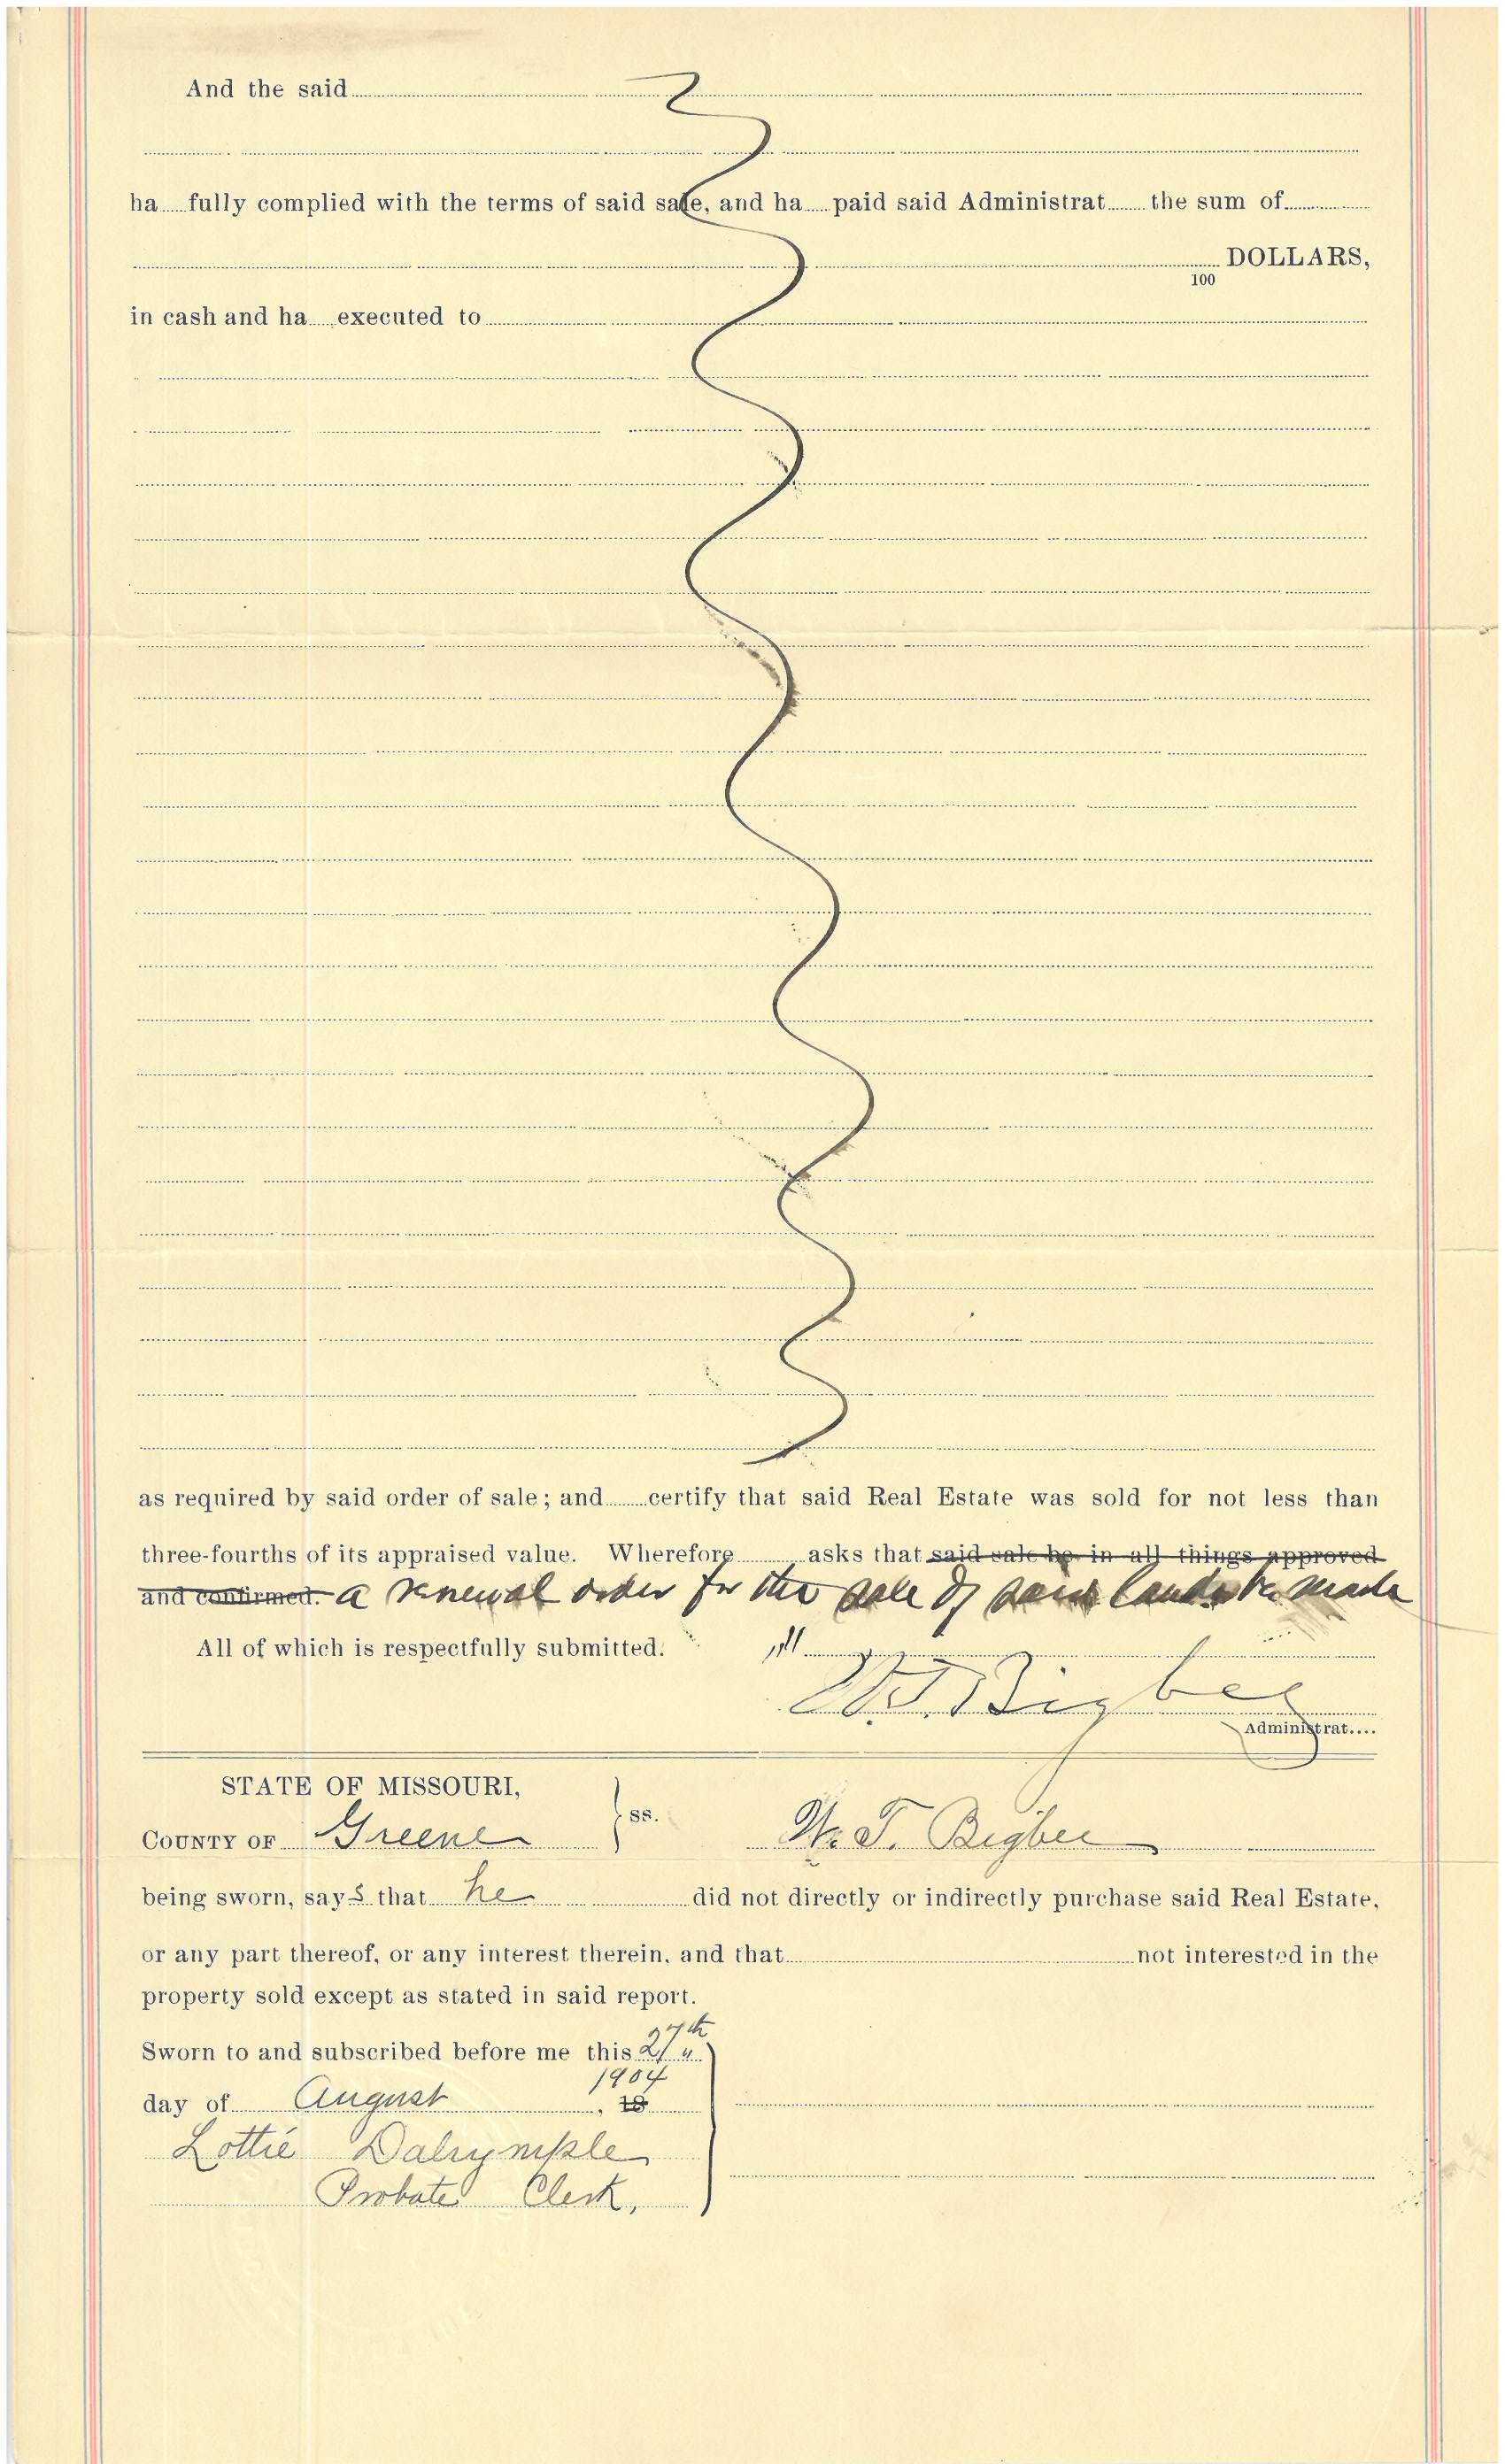 And the said
ha fully complied with the terms of said sale, and ha paid said Administrat the sum of
DOLLARS,
100
in cash and ha executed to
as required by said order of sale; and certify that said Real Estate was sold for not less than
three-fourths of its appraised value. Wherefore asks that said sale be in all things approved
and confirmed. a renewal order for the sale of said lands be made
All of which is respectfully submitted.
W.T. Bigbee
Administrat....
STATE OF MISSOURI,
ss.
COUNTY OF Greene W. T. Bigbee
being sworn, says that he did not directly or indirectly purchase said Real Estate,
or any part thereof, or any interest therein, and that not interested in the
property sold except as stated in said report.
Sworn to and subscribed before me this 27th
1904
day of August, 18
Lottie Dalrymple
Probate Clerk,